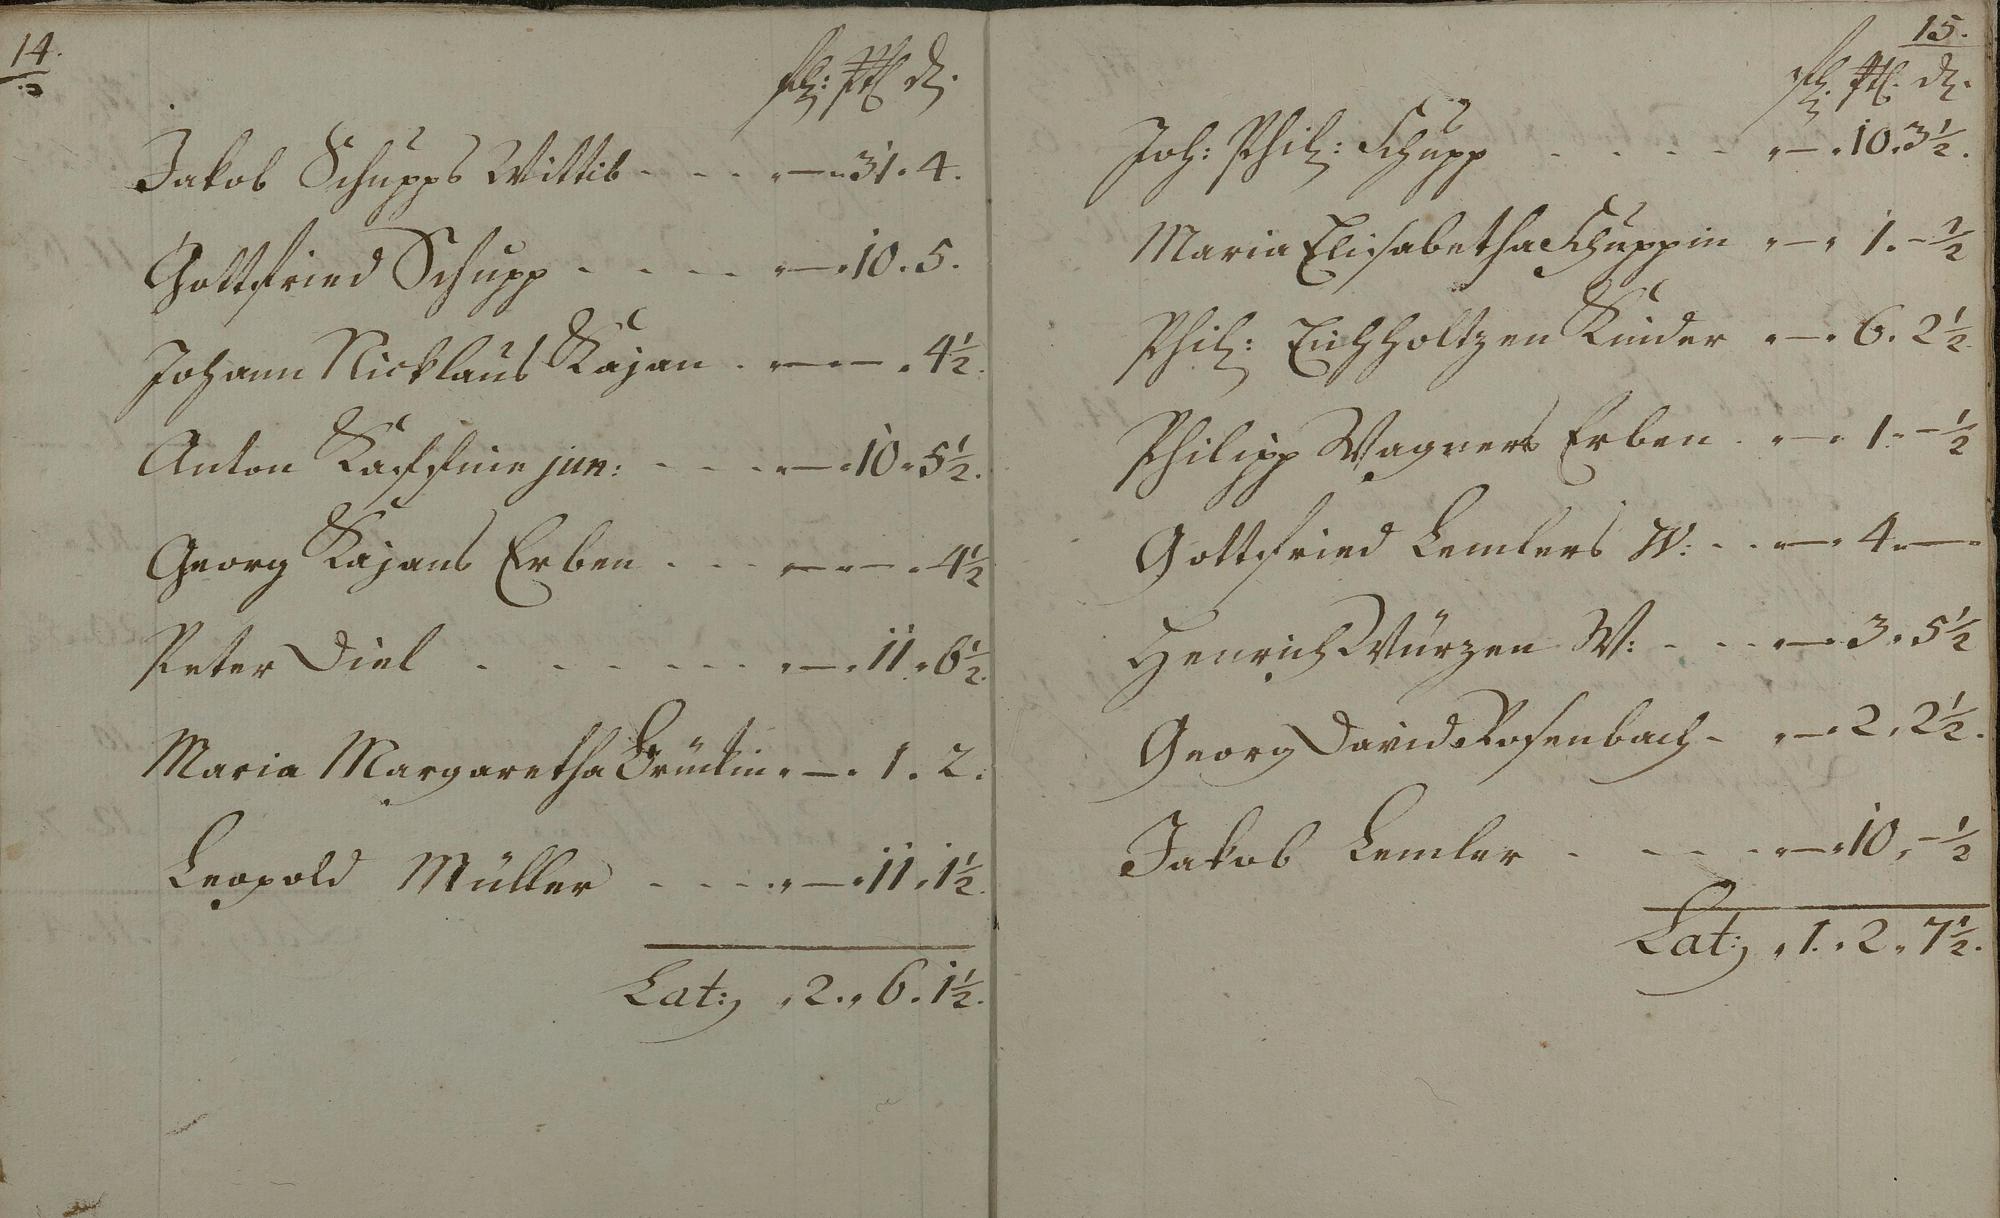 14.
fl: ß d.
Jakob Schupps Wittib - - - „ — „ 31 . 4 .
Gottfried Schupp - - - - „ — „ 10 . 5 .
Johann Nicklaus Kajan . „ — „ — „ 4½ .
Anton Kaffine jun: - - - „ — „ 10 „ 5½ .
Georg Kajans Erben . - - „ — „ — „ 4½
Peter Diel - - - - - - „ — „ 11 „ 6½ .
Maria Margaretha „ — „ 1 . 2 .
Leopold Müller - - - - „ — „ 11 „ 1½ .
Lat: „ 2 . „ 6 . 1½ .
15.
fl. ß. d.
Joh: Phil: Schupp - - - - „ — „ 10 . 3½ .
Maria Elisabetha Schuppin „ — „ 1 . — ½
Phil: Eichholtzen Kinder „ — „ 6 . 2½ .
Philipp Wagners Erben . „ — „ 1 . — ½
Gottfried Lemlers W: - - „ — „ 4 „ —
Henrich Würzen W: - - - „ — „ 3 . 5½
Georg David Rosenbach - „ — „ 2 . 2½ .
Jakob Lemler - - - - „ — „ 10 „ — ½
Lat: „ 1 . „ 2 „ 7½ .